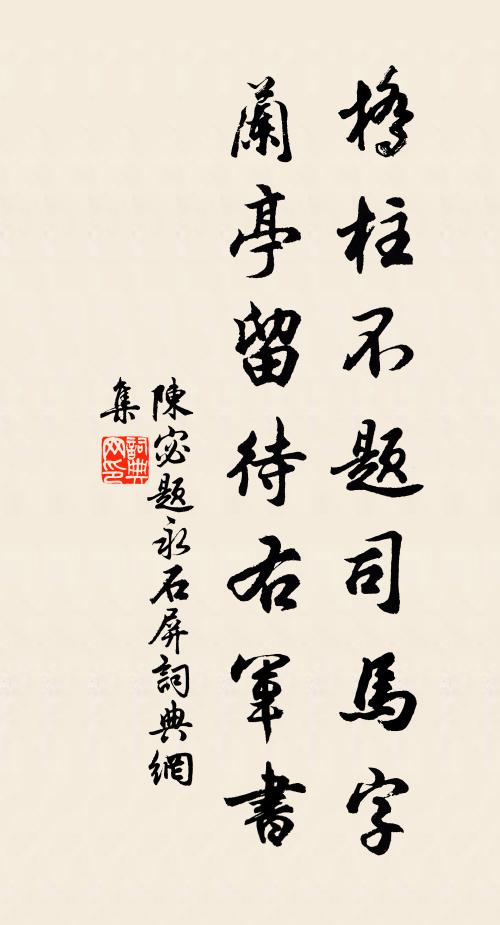 橋柱不題司馬字
蘭亭留待右軍書
陳宓題永石屏詞典網
集
詞典
网印